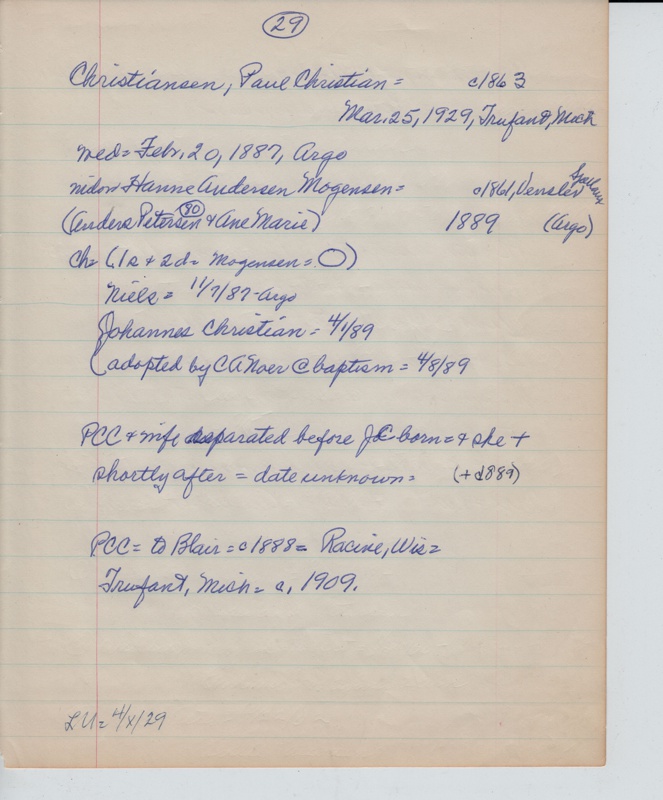 29
Christiansen, Paul Christian = c1863
Mar. 25, 1929, Trufant, Mich
wed = Febr. 20, 1887, Argo
widow Hanne Andersen Mogensen = c1861, Venslev
(Anders Petersen 90 & Ane Marie) 1889 (Argo)
ch = (1s & 2d = Mogensen = O)
Niels = 11/7/87 - Argo
Johannes Christian = 4/1/89
(adopted by CA Noer @ baptism = 4/8/89
PCC & wife separated before JC born = & she +
shortly after = date unknown = (+ c1889)
PCC = to Blair = c1888 = Racine, Wis =
Trufant, Mich = c. 1909.
LU = 4/X/29